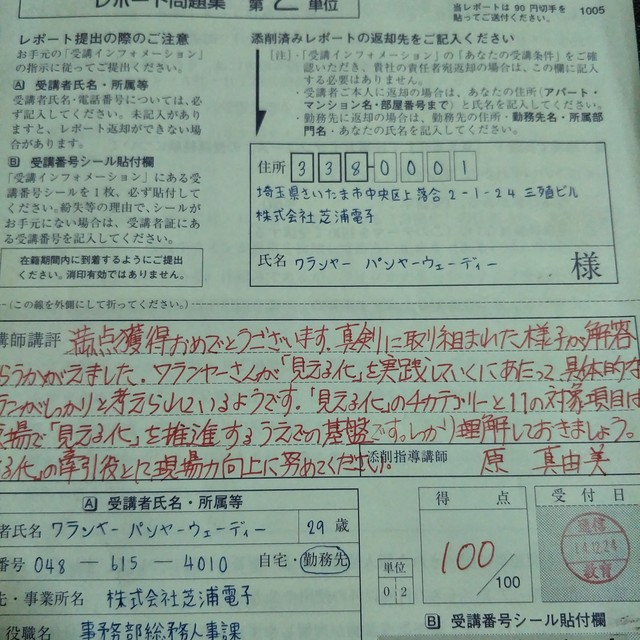 レポート問題集 第2単位
当レポートは90円切手を
貼ってご送付ください。
1005
レポート提出の際のご注意
お手元の「受講インフォメーション」
の指示に従ってご提出ください。
A 受講者氏名・所属等
受講者氏名・電話番号については、必
ず記入してください。未記入があり
ますと、レポート返却ができない場
合があります。
B 受講番号シール貼付欄
「受講インフォメーション」にある受
講番号シールを1枚、必ず貼付して
ください。紛失等の理由で、シールが
お手元にない場合は、受講者証にあ
る受講番号を記入してください。
在籍期間内に到着するようにご提出
ください。消印有効ではありません。
添削済みレポートの返却先をご記入ください
[注]・「受講インフォメーション」の「あなたの受講条件」をご確
認いただき、貴社の責任者宛返却の場合は、この欄に記入
する必要はありません。
・受講者ご本人に返却の場合は、あなたの住所(アパート・
マンション名・部屋番号まで)と氏名を記入してください。
・勤務先に返却の場合は、勤務先の住所・勤務先名・所属部
門名・あなたの氏名を記入してください。
住所 338-0001
埼玉県さいたま市中央区上落合2-1-24 三殖ビル
株式会社芝浦電子
氏名 ワランヤー パンヤーウェーディー 様
(この線を外側にして折ってください。)
講師講評 満点獲得おめでとうございます。真剣に取り組まれた様子が解答
らうかがえました。ワランヤーさんが「見える化」を実践していくにあたって、具体的な
ランがしっかりと考えられているようです。「見える化」の4カテゴリーと11の対象項目は
現場で「見える化」を推進するうえでの基盤です。しっかり理解しておきましょう。
る化」の牽引役として現場力向上に努めてください。
添削指導講師 原 真由美
A 受講者氏名・所属等
者氏名 ワランヤー パンヤーウェーディー 29歳
番号 048-615-4010 自宅・勤務先
先・事業所名 株式会社芝浦電子
役職名 事務部総務人事課
単位
02
得点
100/100
受付日
通信
14.12.24
教育
B 受講番号シール貼付欄